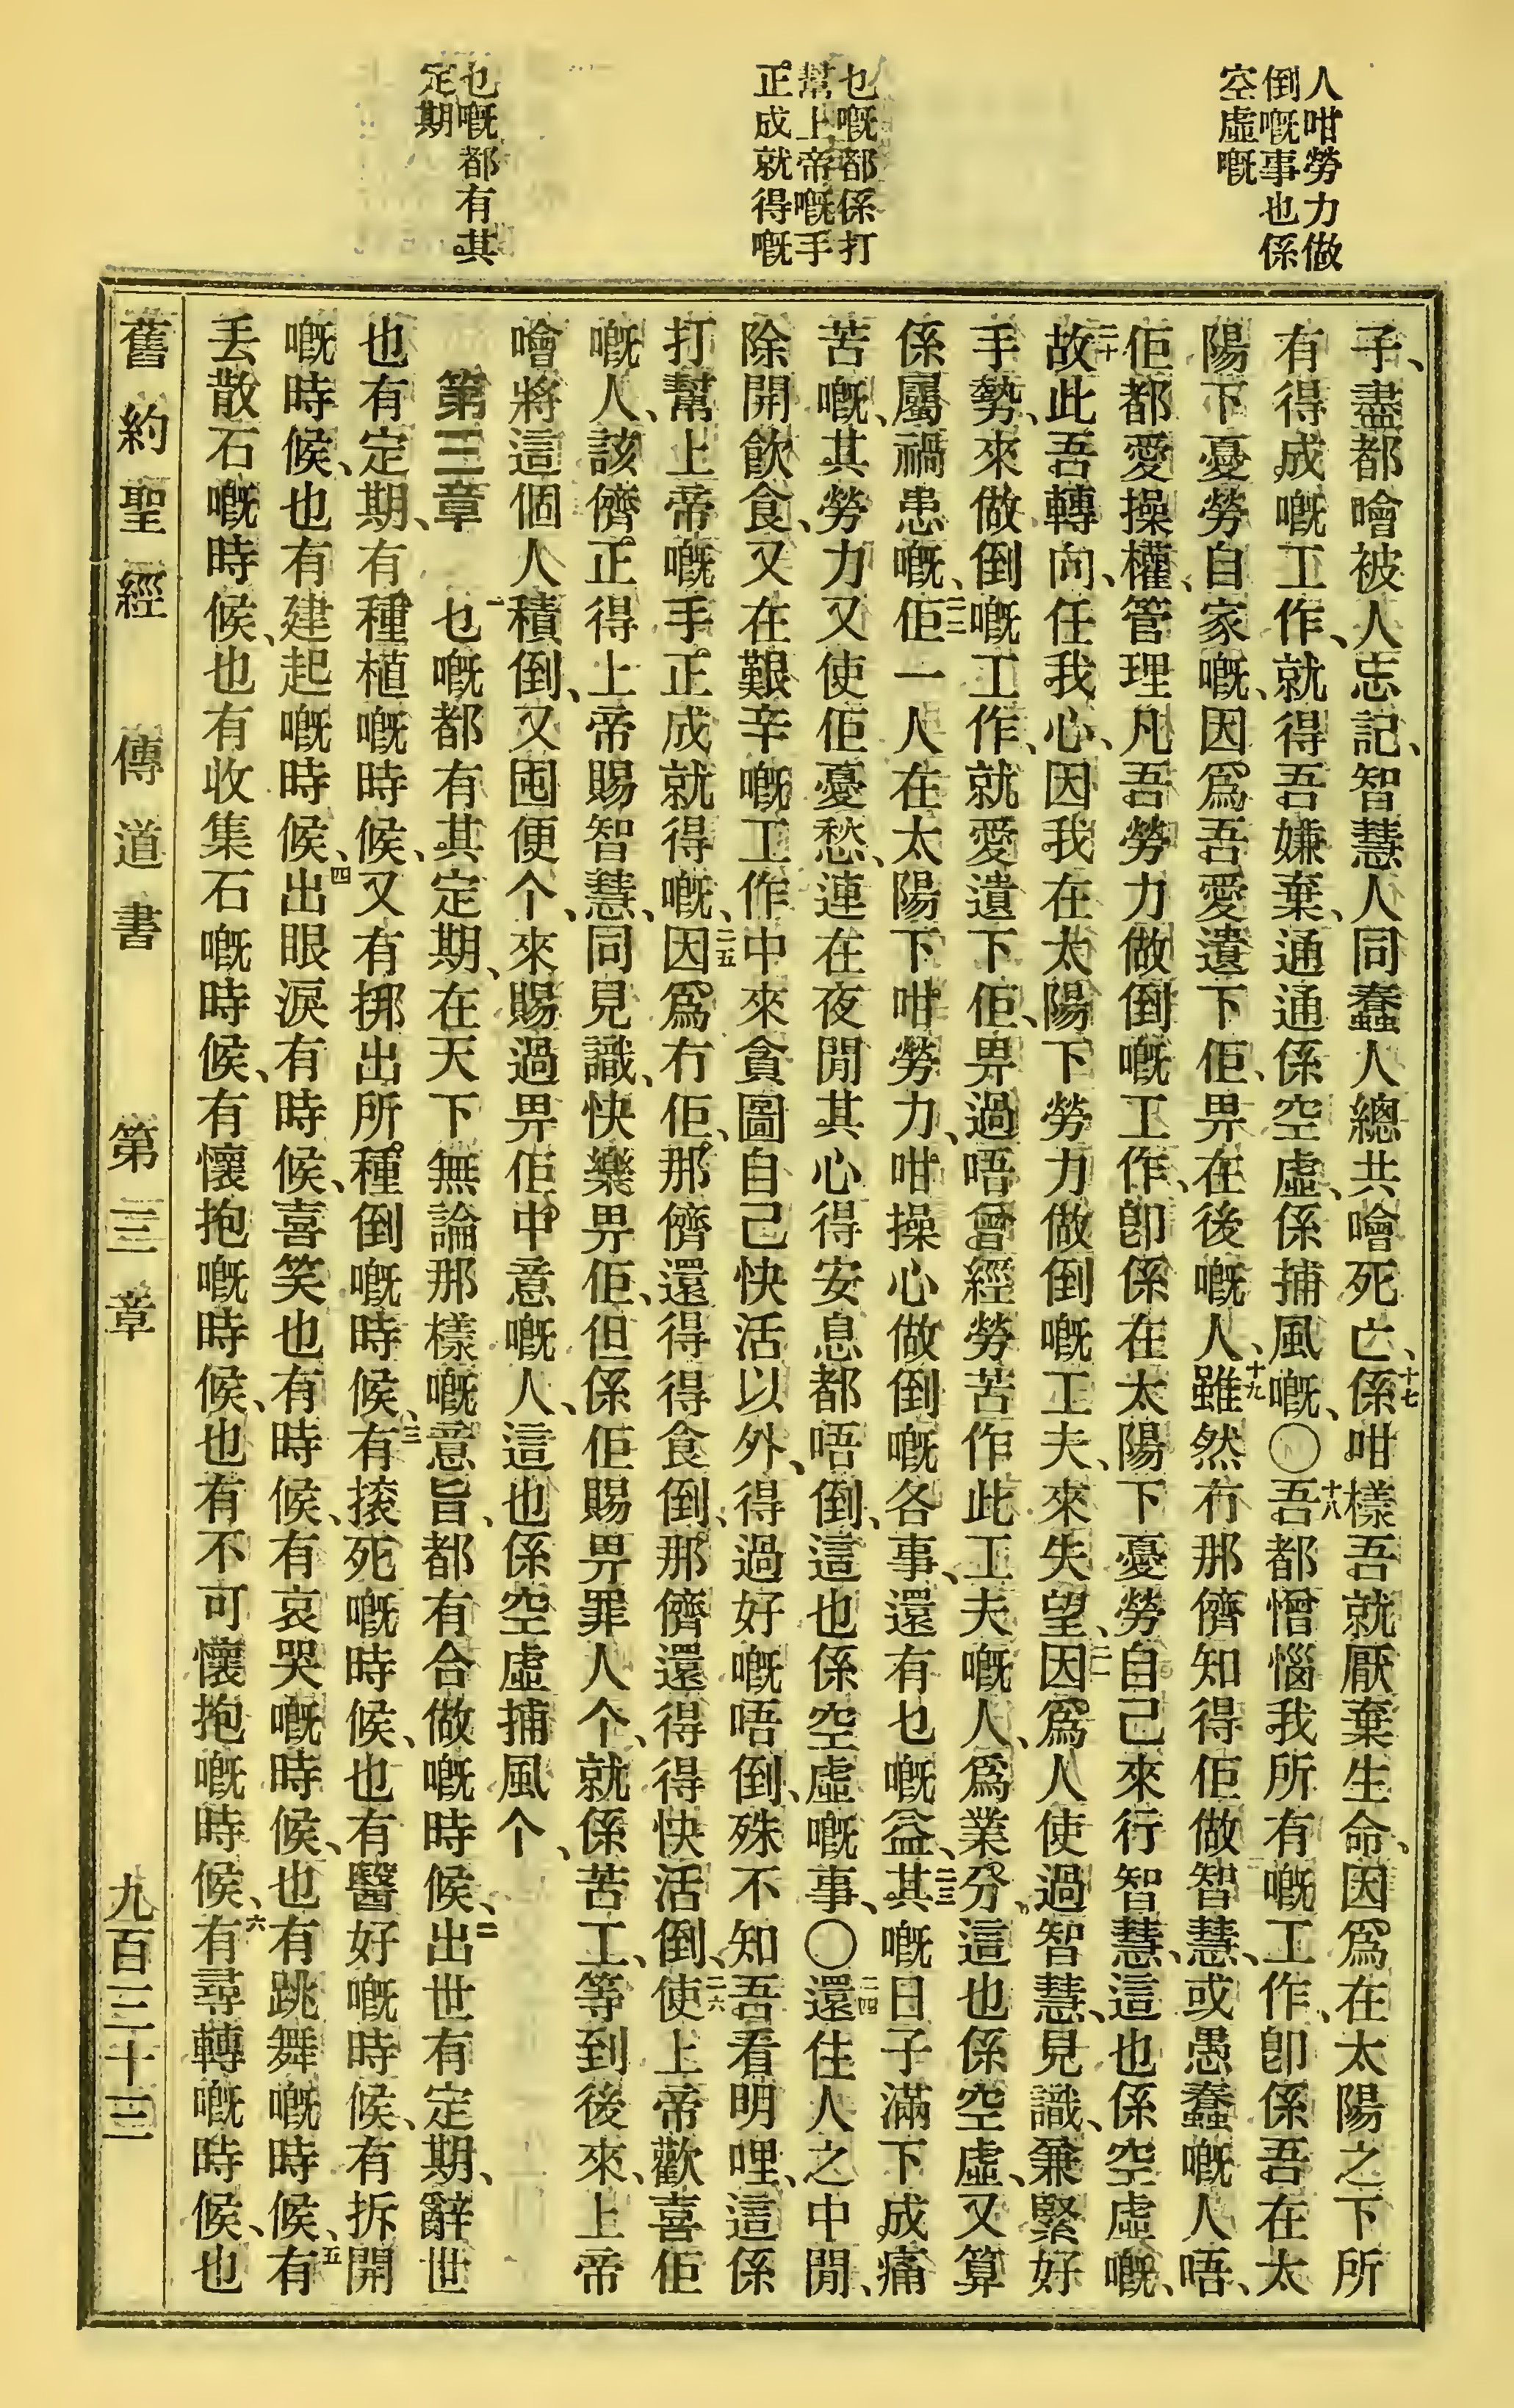 人咁勞力做
倒嘅事也係
空虛嘅
乜嘅都係打
幫上帝嘅手
正成就得嘅
乜嘅都有其
定期
子、盡都噲被人忘記、智慧人同蠢人總共噲死亡、十七係咁樣吾就厭棄生命、因爲在太陽之下所
有得成嘅工作、就得吾嫌棄、通通係空虛、係捕風嘅、〇十八吾都憎惱我所有嘅工作、卽係吾在太
陽下憂勞自家嘅、因爲吾愛遺下佢、畀在後嘅人、十九雖然冇那儕知得佢做智慧、或愚蠢嘅人唔、
佢都愛操權、管理凡吾勞力做倒嘅工作、卽係在太陽下憂勞自己來行智慧、這也係空虛嘅、
二十故此吾轉向、任我心、因我在太陽下勞力做倒嘅工夫、來失望、二一因爲人使過智慧、見識、兼緊好
手勢、來做倒嘅工作、就愛遺下佢、畀過唔曾經勞苦作此工夫嘅人、爲業分、這也係空虛、又算
係屬禍患嘅、二二佢一人在太陽下咁勞力、咁操心做倒嘅各事、還有乜嘅益、二三其嘅日子滿下成痛
苦嘅、其勞力又使佢憂愁、連在夜間其心得安息都唔倒、這也係空虛嘅事、〇二四還住人之中間、
除開飲食、又在艱辛嘅工作中來貪圖自己快活以外、得過好嘅唔倒、殊不知吾看明哩、這係
打幫上帝嘅手正成就得嘅、二五因爲冇佢、那儕還得得食倒、那儕還得得快活倒、二六使上帝歡喜佢
嘅人、該儕正得上帝賜智慧、同見識、快樂畀佢、但係佢賜畀罪人个、就係苦工、等到後來、上帝
噲將這個人積倒、又囤便个、來賜過畀佢中意嘅人、這也係空虛捕風个、
第三章　一乜嘅都有其定期、在天下無論那樣嘅意旨、都有合做嘅時候、二出世有定期、辭世
也有定期、有種植嘅時候、又有挷出所種倒嘅時候、三有㨆死嘅時候、也有醫好嘅時候、有拆開
嘅時候、也有建起嘅時候、四出眼淚有時候、喜笑也有時候、有哀哭嘅時候、也有跳舞嘅時候、五有
丢散石嘅時候、也有收集石嘅時候、有懷抱嘅時候、也有不可懷抱嘅時候、六有尋轉嘅時候、也
舊約聖經　傳道書　第三章　九百三十三